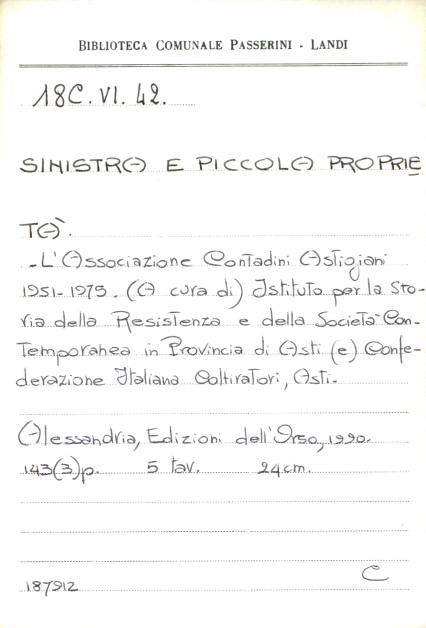 BIBLIOTECA COMUNALE PASSERINI - LANDI
18C. VI. 42.
SINISTRA E PICCOLA PROPRIE
TÀ.
- L'Associazione Contadini Astigiani
1951-1975. (A cura di) Istituto per la Sto-
ria della Resistenza e della Società Con-
temporanea in Provincia di Asti (e) Confe-
derazione Italiana Coltivatori, Asti.
Alessandria, Edizioni dell'Orso, 1990.
143(3)p. 5 tav. 24cm.
187912 C